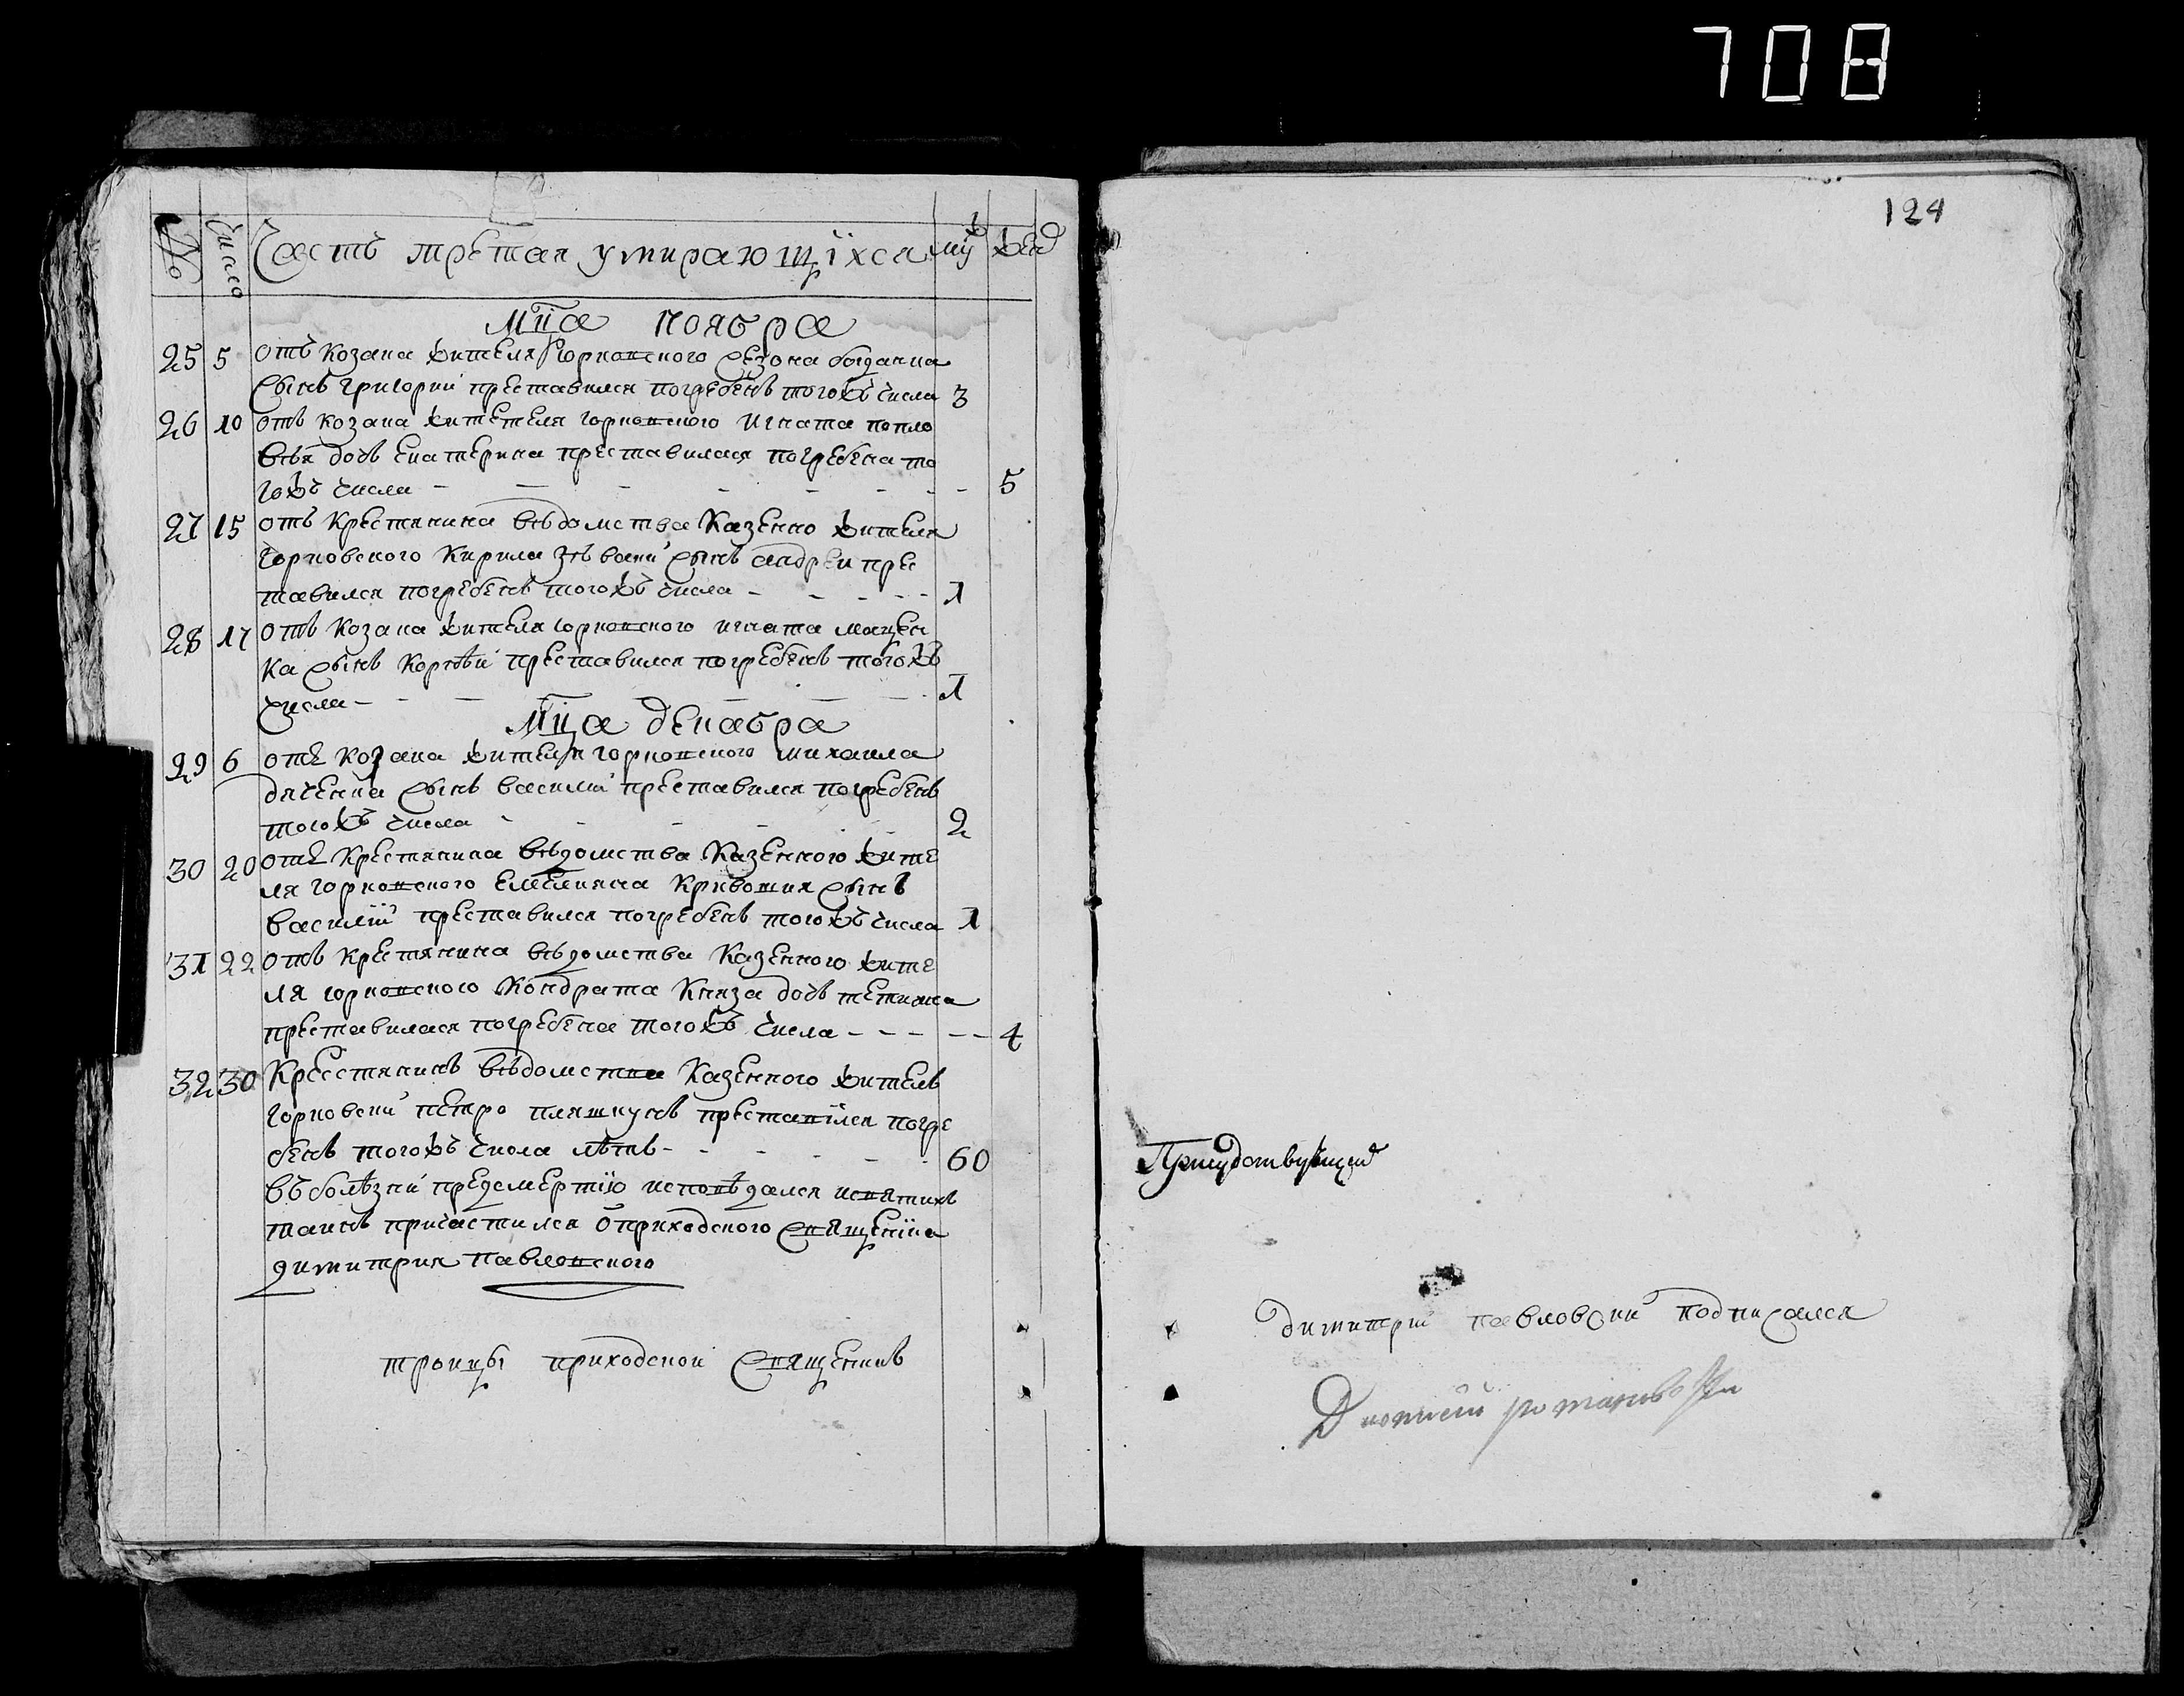 708
№ Число Часть третая умирающихся му же
Мца ноября
25 5 отъ козака жителя Горковского Сезона богдачка
сынъ григорий преставился погребенъ тогожъ числа 3
26 10 отъ козака жителя горковского Игната попло
въя дочь Екатерина преставилася погребена то
гожъ числа - - - - - - - 5
27 15 отъ Крестянина вѣдомства Казенно жителя
Горковского Кирила сынъ андреи прес
тавился погребенъ тогожъ числа - - - - - 1
28 17 отъ козака жителя горковского игната мацен
ка сынъ Корнѣй преставился погребенъ тогожъ
числа - - - - - - 1
Мца декабра
29 6 отъ козака жителя горковского михаила
дяченка сынъ василий преставился погребенъ
тогожъ числа - - - - - 2
30 20 отъ Крестянина вѣдомства Казенного жите
ля горковского Емелияна Кривошия сынъ
василий преставился погребенъ тогожъ числа 1
31 22 отъ Крестянина вѣдомства Казенного жите
ля горковского Кондрата Князя дочь тетиана
преставилася погребена тогожъ числа - - - - - 4
32 30 Креестянинъ вѣдомства Казенного житель
горковский петро пляшкунъ преставился погре
бенъ тогожъ числа лѣтъ - - - - - - 60
въ болѣзни предсмертию исповѣдался исвятихъ
таинъ причастился ѿ приходского священика
димитрия павловского
троицы приходской священикъ
124
димитрий павловский подписался